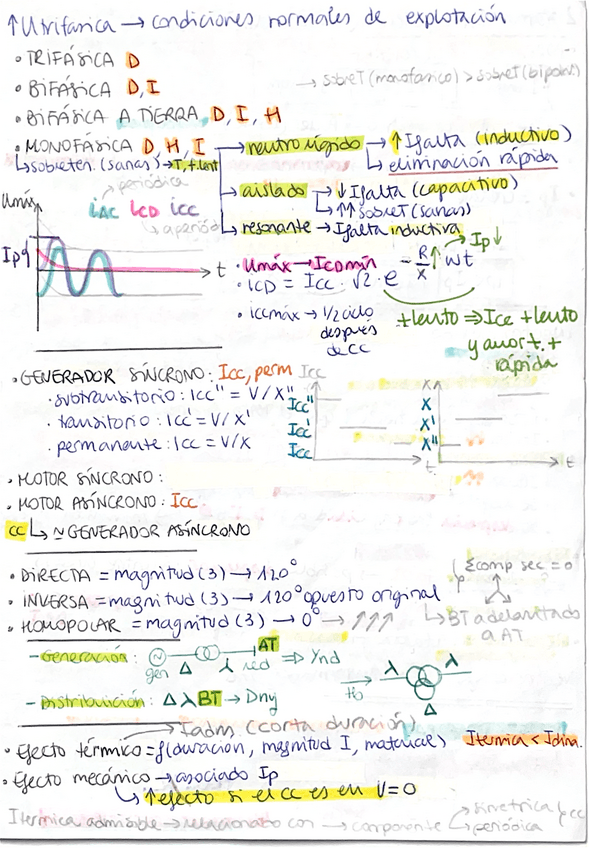 ↑Utrifasica → condiciones normales de explotación
• TRIFÁSICA D
• BIFÁSICA D, I → sobreT (monofasico) > sobreT (bipolar)
• BIFÁSICA A TIERRA, D, I, H
• MONOFÁSICA D H, I → neutro rígido → ↑ Ifalta (inductivo)
↳ sobreten. (sanas) → T, + lent ↳ eliminación rápida
→ aislado → ↓ Ifalta (capacitivo)
↳ ↑↑ sobreT (sanas)
→ resonante → Ifalta inductiva
Umáx
periódica
iAC iCD icc
aperiód
Ip
t
• Umáx → ICDmín
• ICD = Icc · √2 · e - R/X ↑ wt → Ip ↓
• iccmáx → 1/2 ciclo
después
de CC
+ lento ⇒ Ice + lento
y amort. +
rápida
• GENERADOR SÍNCRONO: Icc, perm
• subtransitorio: Icc'' = V/X''
• transitorio: Icc' = V/X'
• permanente: Icc = V/X
Icc
Icc''
Icc'
Icc
t
X
X
X'
X''
t
• MOTOR SÍNCRONO:
• MOTOR ASÍNCRONO: Icc
cc ↳ ≃ GENERADOR ASÍNCRONO
• DIRECTA = magnitud (3) → 120°
• INVERSA = magnitud (3) → 120° opuesto original
• HOMOPOLAR = magnitud (3) → 0° → ↑↑↑
Σcomp sec = 0
↳ BT adelantado
a AT
- Generación: gen Δ λ red AT ⇒ Ynd
- Distribuición: Δ λ BT → Dny
λ λ
Δ
→ Iadm (corta duración)
• Efecto térmico = f(duracion, magnitud I, material) Itermica < Idin.
• Efecto mecánico → asociado Ip
↳ ↑ efecto si el cc es en V=0
Itermica admisible → relacionado con → componente → simetrica
↳ periódica